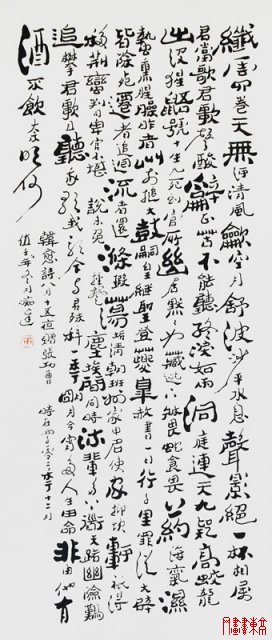 纖雲四卷天無河清風龡空月舒波沙平水息聲影絕一杯相屬
君當歌君歌聲酸辭且苦不能聽終淚如雨洞庭連天九疑高蛟龍
出没猩鼯號十生九死到官所幽居默默如藏逃下床畏蛇食畏藥海氣濕
蟄熏腥臊昨者州前搥大鼓嗣皇繼聖登夔皋赦書一日行千里罪從大辟
皆除死遷者追迴流者還滌瑕蕩垢清朝班州家申名使家抑坎軻祇得
移荆蠻判司卑官不堪說未免捶楚塵埃間同時流輩多上道天路幽險難
追攀君歌且休聽我歌我歌今與君殊科一年明月今宵多人生由命非由他有
酒不飲奈明何
韓愈詩八月十五夜贈張功曹